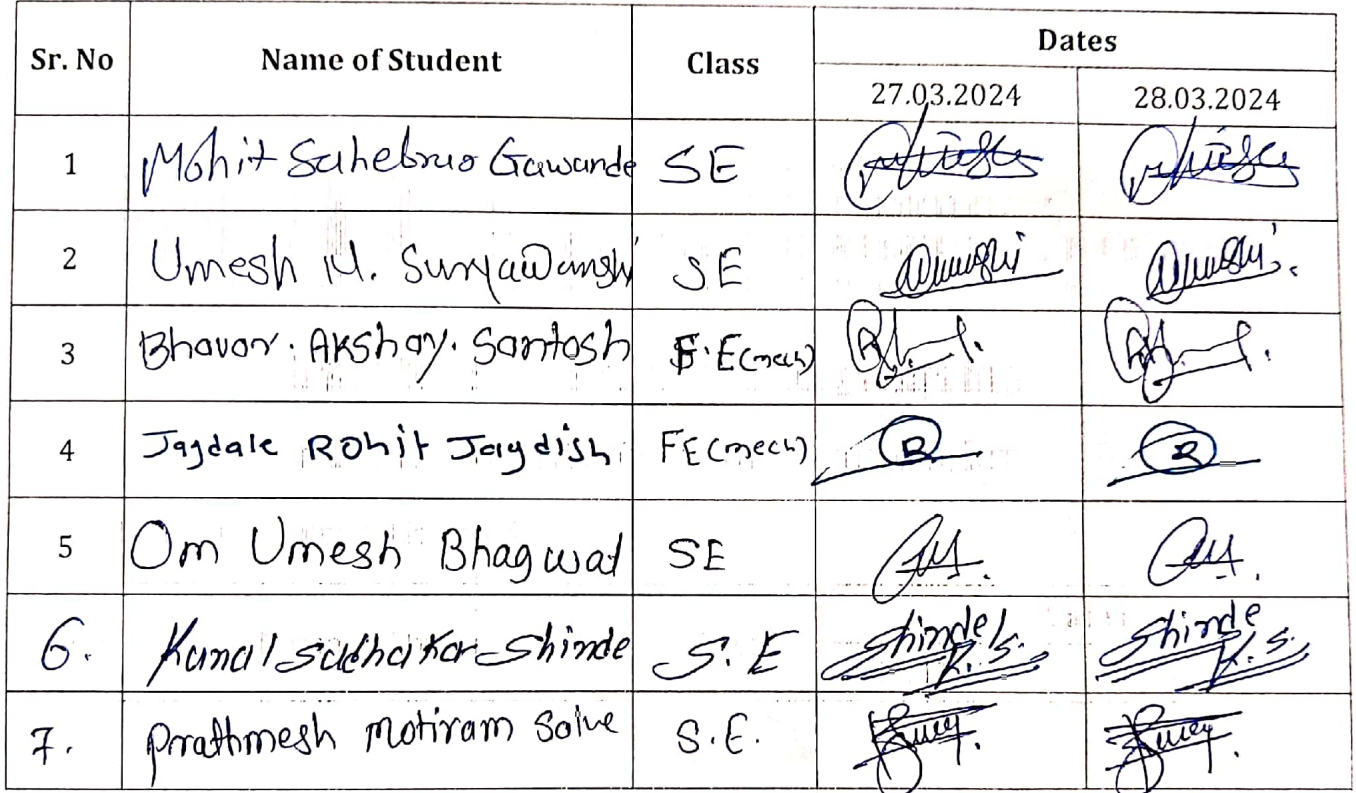 Sr. No Name of Student Class Dates
27.03.2024 28.03.2024
1 Mohit Sahebrao Gawande SE
2 Umesh M. Suryawanshi SE
3 Bhavar. Akshay. Santosh F.E(mech)
4 Jagdale Rohit Jagdish FE(mech) R R
5 Om Umesh Bhagwat SE
6. Kunal Sudhakar Shinde S.E Shinde K.S. Shinde K.S.
7. Prathmesh Motiram Salve S.E.